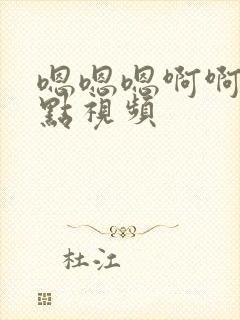 嗯嗯嗯啊啊
點視頻
杜江